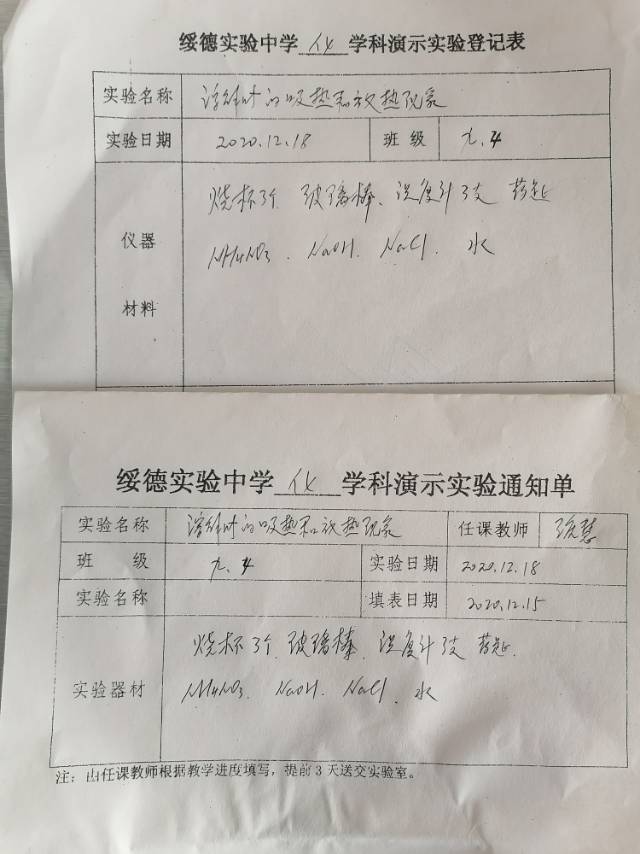 绥德实验中学 化 学科演示实验登记表
实验名称 溶解时的吸热和放热现象
实验日期 2020.12.18 班 级 九.4
仪器
材料
烧杯3个 玻璃棒、温度计3支 药匙
NH4NO3. NaOH. NaCl. 水
绥德实验中学 化 学科演示实验通知单
实验名称 溶解时的吸热和放热现象 任课教师
班 级 九.4 实验日期 2020.12.18
实验名称 填表日期 2020.12.15
实验器材
烧杯3个 玻璃棒 温度计3支 药匙.
NH4NO3. NaOH. NaCl. 水
注：由任课教师根据教学进度填写，提前3天送交实验室。